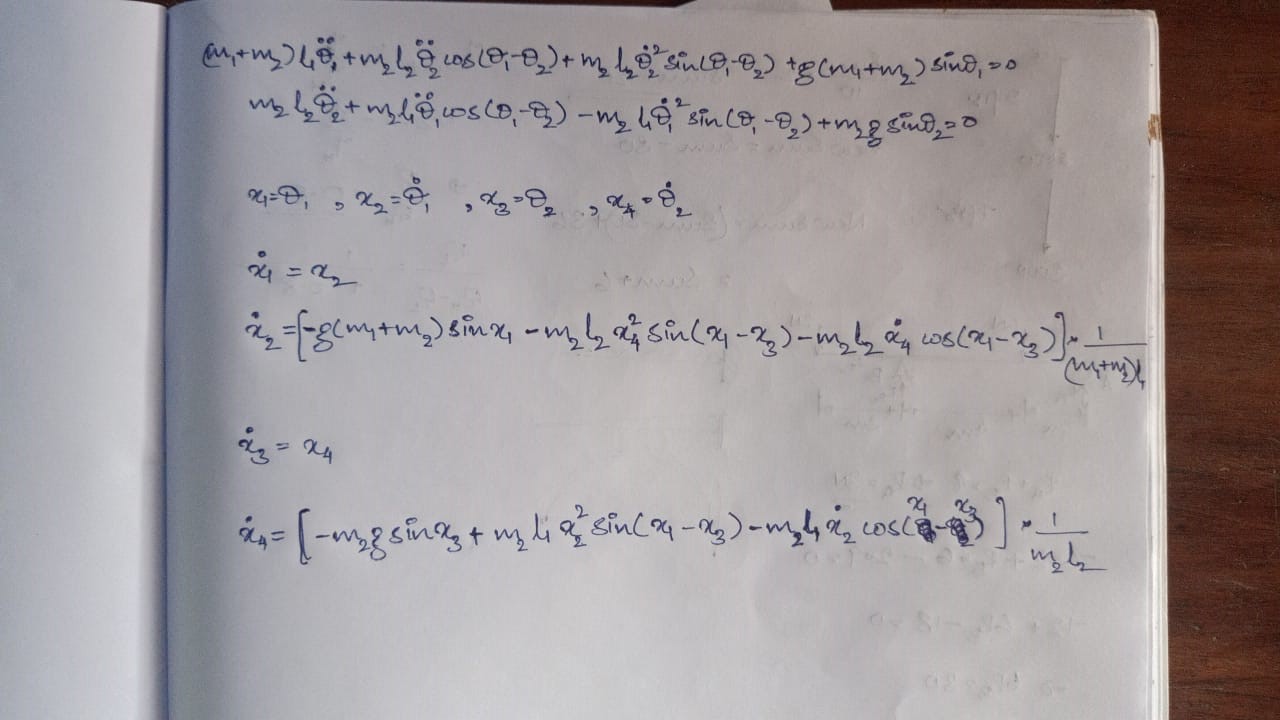 (m₁+m₂) l₁θ̈₁ + m₂ l₂ θ̈₂ cos(θ₁-θ₂) + m₂ l₂ θ̇₂² sin(θ₁-θ₂) + g(m₁+m₂) sinθ₁ = 0
m₂ l₂ θ̈₂ + m₂ l₁ θ̈₁ cos(θ₁-θ₂) - m₂ l₁ θ̇₁² sin(θ₁-θ₂) + m₂ g sinθ₂ = 0
x₁ = θ₁ , x₂ = θ̇₁ , x₃ = θ₂ , x₄ = θ̇₂
ẋ₁ = x₂
ẋ₂ = [-g(m₁+m₂) sin x₁ - m₂ l₂ x₄² sin(x₁-x₃) - m₂ l₂ ẋ₄ cos(x₁-x₃)] * 1/(m₁+m₂)l₁
ẋ₃ = x₄
ẋ₄ = [-m₂ g sin x₃ + m₂ l₁ x₂² sin(x₁-x₃) - m₂ l₁ ẋ₂ cos(x₁-x₃)] * 1/m₂ l₂